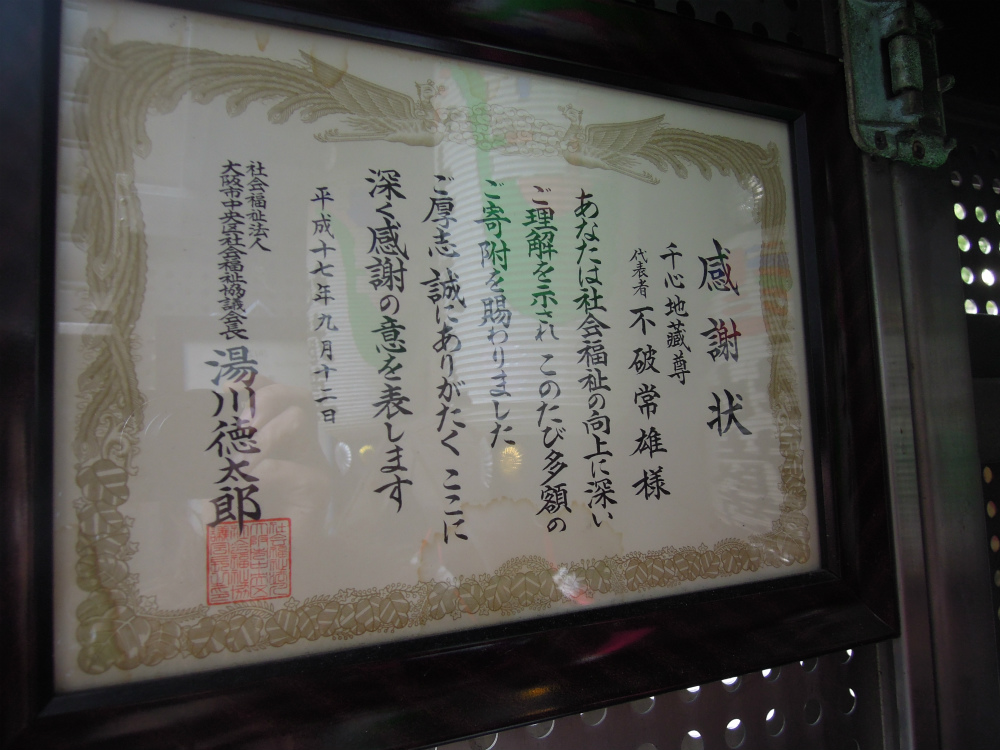 感謝状
千心地蔵尊
代表者 不破常雄様
あなたは社会福祉の向上に深い
ご理解を示され このたび多額の
ご寄附を賜わりました
ご厚志 誠にありがたく ここに
深く感謝の意を表します
平成十七年九月十二日
社会福祉法人
大阪市中央区社会福祉協議会会長 湯川徳太郎